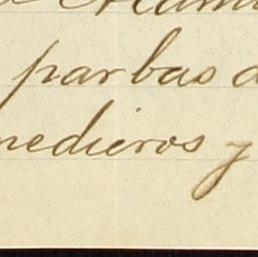 parbas d
medieros y